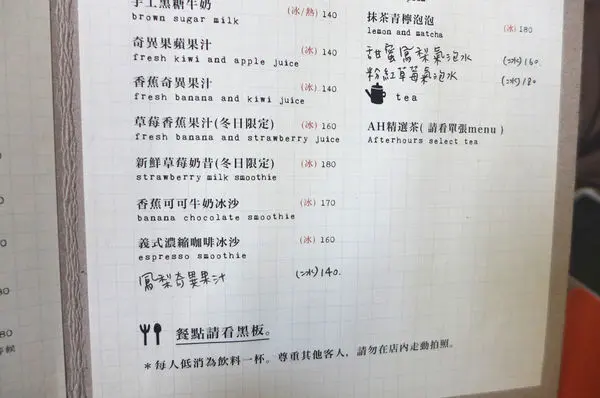 手工黑糖牛奶 (冰/熱) 140
brown sugar milk
奇異果蘋果汁 140
fresh kiwi and apple juice
香蕉奇異果汁 (冰) 140
fresh banana and kiwi juice
草莓香蕉果汁(冬日限定) (冰) 160
fresh banana and strawberry juice
新鮮草莓奶昔(冬日限定) (冰) 180
strawberry milk smoothie
香蕉可可牛奶冰沙 (冰) 170
banana chocolate smoothie
義式濃縮咖啡冰沙 (冰) 160
espresso smoothie
鳳梨奇異果汁 (冰) 140.
餐點請看黑板。
*每人低消為飲料一杯。尊重其他客人，請勿在店內走動拍照。
抹茶青檸泡泡 (冰) 180
lemon and matcha
甜蜜鳳梨氣泡水 (冰) 160.
粉紅草莓氣泡水 (冰) 180
tea
AH精選茶( 請看單張menu )
Afterhours select tea
80